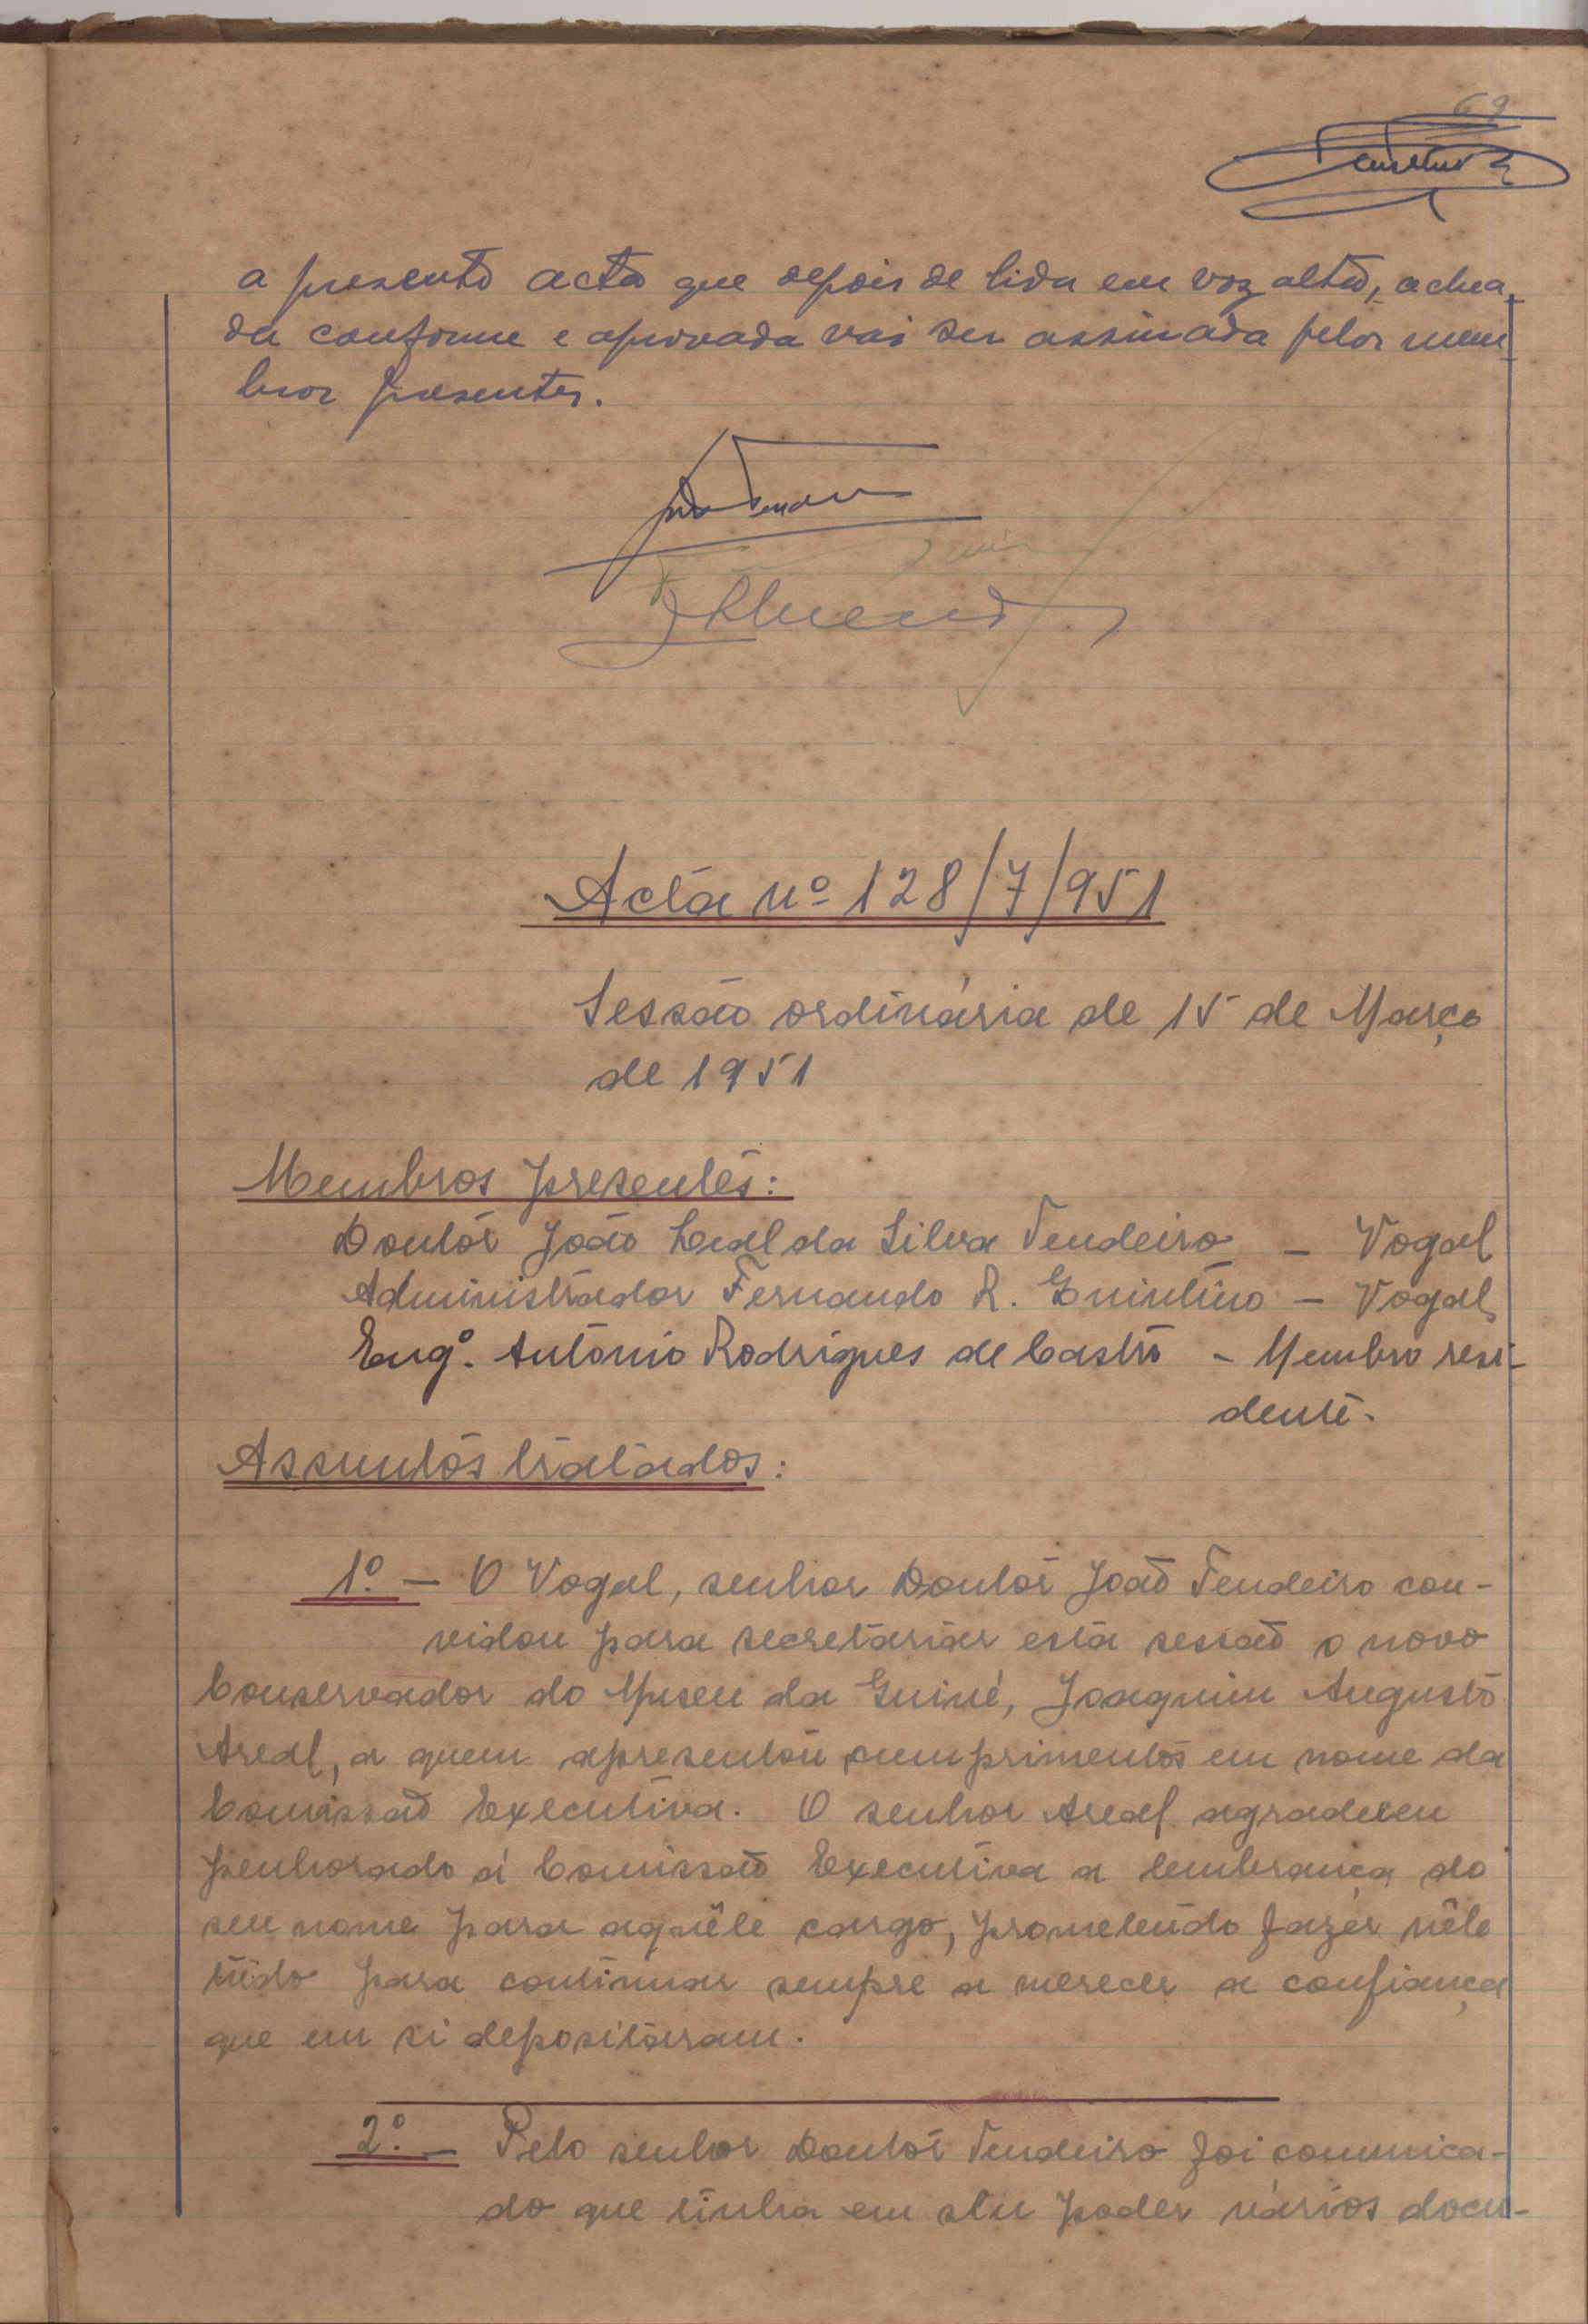 69
a presente acta que depois de lida em voz alta, acha-
da conforme e aprovada vai ser assinada pelos mem-
bros presentes.
Acta nº 128/7/951
Sessão ordinária de 15 de Março
de 1951
Membros presentes:
Doutor João Leal da Silva Tendeiro - Vogal
Administrador Fernando R. Quintino - Vogal
Engº. António Rodrigues de Castro - Membro resi-
dente.
Assuntos tratados:
1º. - O Vogal, senhor Doutor João Tendeiro con-
vidou para secretariar esta sessão o novo
Conservador do Museu da Guiné, Joaquim Augusto
Areal, a quem apresentou cumprimentos em nome da
Comissão Executiva. O senhor Areal agradeceu
penhorado á Comissão Executiva a lembrança do
seu nome para aquêle cargo, prometendo fazer nêle
tudo para continuar sempre a merecer a confiança
que em si depositaram.
2º. - Pelo senhor Doutor Tendeiro foi comunica-
do que tinha em seu poder vários docu-